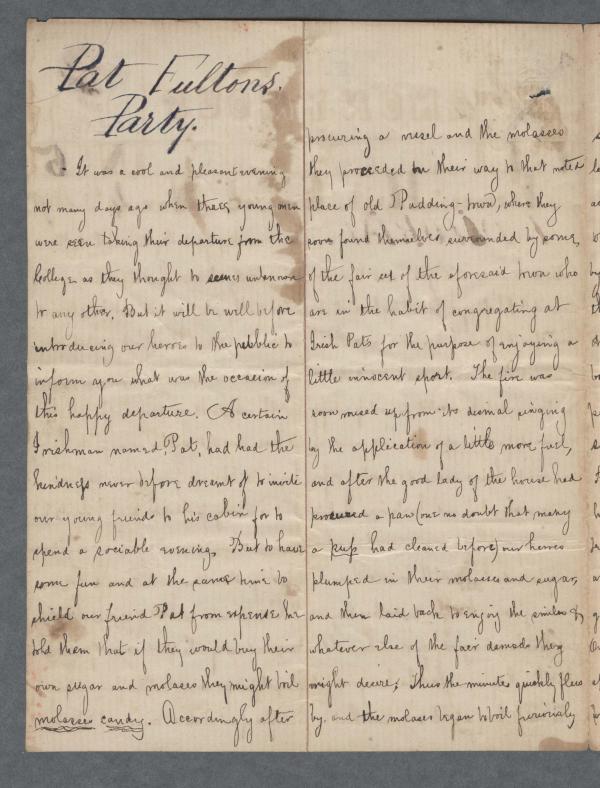 Pat Fultons.
Party.
It was a cool and pleasant evening
not many days ago when three young men
were seen taking their departure from the
College as they thought to unknown
to any other. But it will be well before
introducing our heroes to the public to
inform you what was the occasion of
this happy departure. A certain
Irishman named, Pat, had had the
kindness never before dreamt of to invite
our young friends to his cabin for to
spend a sociable evening. But to have
some fun and at the same time to
shield our friend Pat from expense he
told them that if they would buy their
own sugar and molases they might boil
molasses candy. Accordingly after
procuring a vessel and the molasses
they proceeded on their way to that noted
place of old Pudding-town, where they
soon found themselves surrounded by some,
of the fair sex of the aforesaid town who
are in the habit of congregating at
Irish Pats for the purpose of enjoying a
little innocent sport. The fire was
soon roused up from its dismal singing
by the application of a little more fuel,
and after the good lady of the house had
procured a pan (one no doubt that many
a pup had cleaned before) our heroes
plumped in their molasses and sugar,
and then laid back to enjoy the smiles &
whatever else of the fair damsels they
might desire; Thus the minutes quickly flew
by. and the molases began to boil furiously